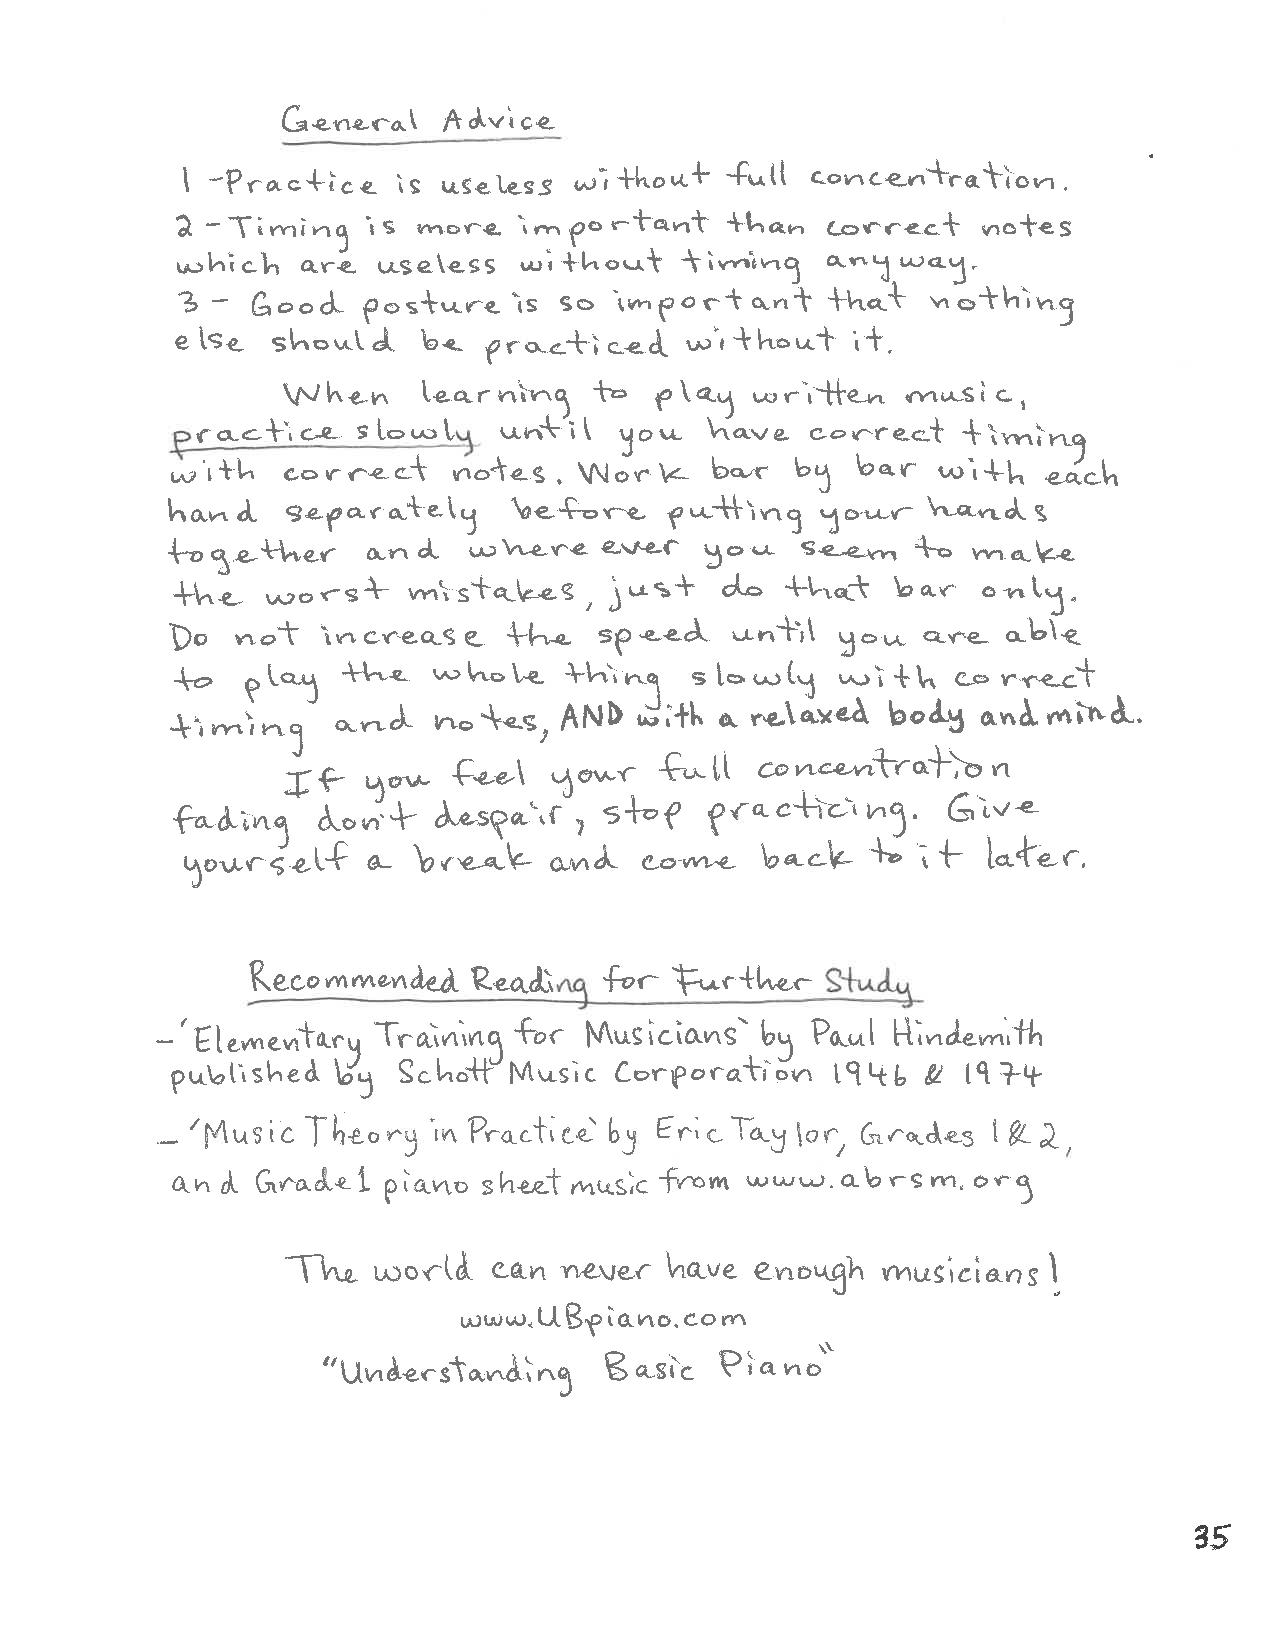 General Advice
1 - Practice is useless without full concentration.
2 - Timing is more important than correct notes
which are useless without timing anyway.
3 - Good posture is so important that nothing
else should be practiced without it.
When learning to play written music,
practice slowly until you have correct timing
with correct notes. Work bar by bar with each
hand separately before putting your hands
together and where ever you seem to make
the worst mistakes, just do that bar only.
Do not increase the speed until you are able
to play the whole thing slowly with correct
timing and notes, AND with a relaxed body and mind.
If you feel your full concentration
fading don't despair, stop practicing. Give
yourself a break and come back to it later.
Recommended Reading for Further Study
- 'Elementary Training for Musicians' by Paul Hindemith
published by Schott Music Corporation 1946 & 1974
- 'Music Theory in Practice' by Eric Taylor, Grades 1 & 2,
and Grade 1 piano sheet music from www.abrsm.org
The world can never have enough musicians!
www.UBpiano.com
"Understanding Basic Piano"
35